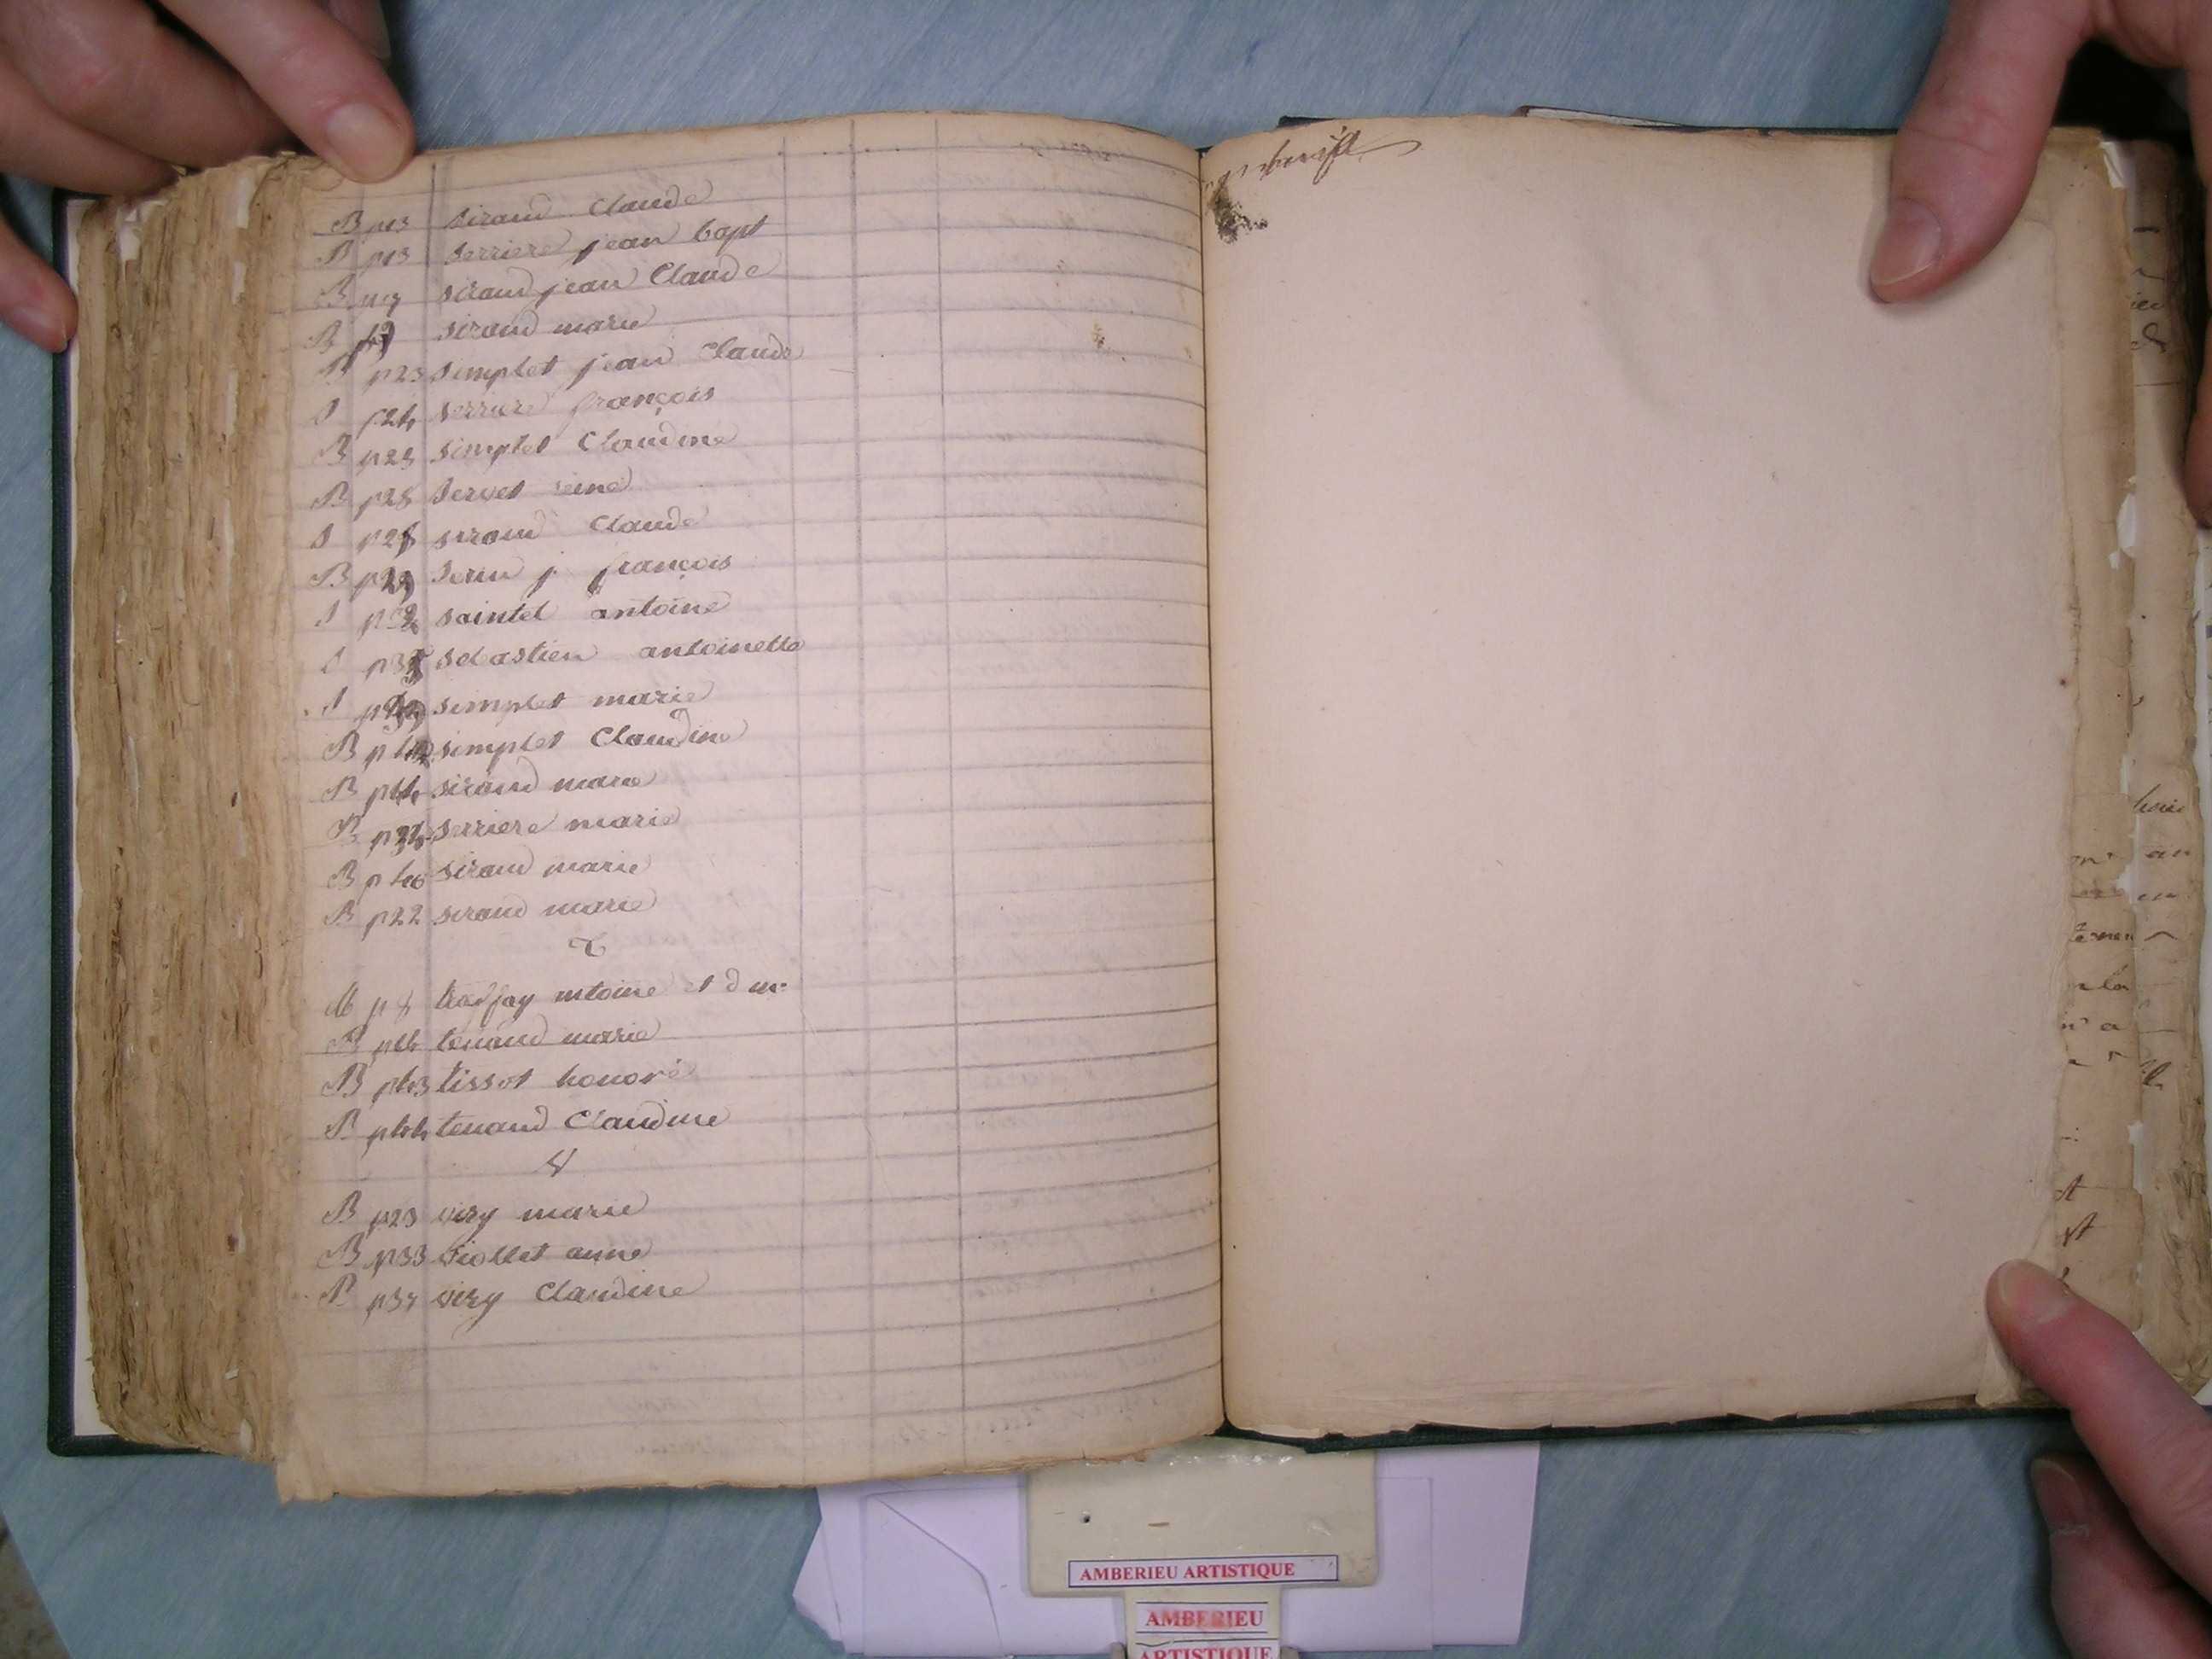 B p13 siraud Claude
B p13 serriere jean bapt
B siraud jean Claude
B siraud marie
B p23 simplet jean Claude
S p24 serriere françois
B p25 simplet Claudine
B p25 servet reine
S siraud Claude
B serin j françois
S saintel antoine
S sebastien antoinette
S simplet marie
B simplet Claudine
B siraud marie
B serriere marie
B p46 siraud marie
B p22 siraud marie
T
M p8 antoine et
B tenand marie
B p43 tissot honoré
B p44 tenand Claudine
V
B p23 viry marie
B p33 viollet anne
B p37 viry Claudine
AMBERIEU ARTISTIQUE
AMBERIEU
ARTISTIQUE